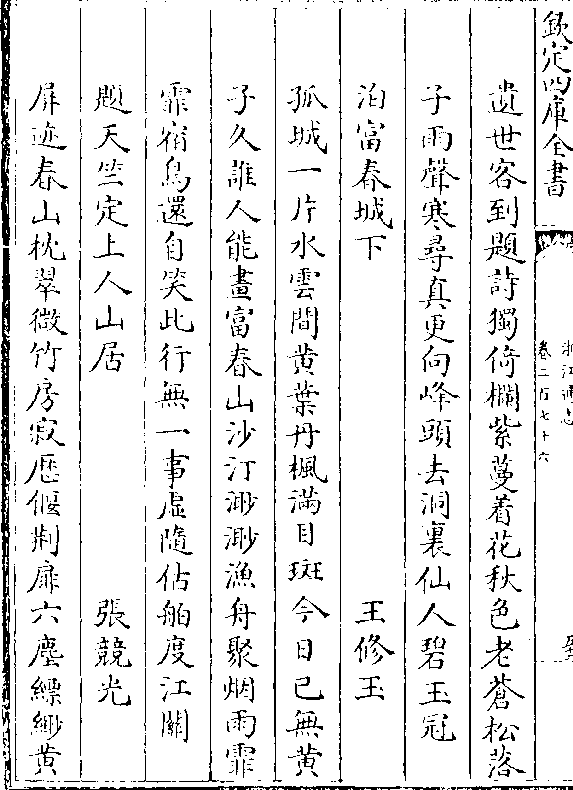 欽定四庫全書
浙江通志
卷二百七十六
遺世客到題詩獨倚欄紫蔓着花秋色老蒼松落
子雨聲寒尋真更向峰頭去洞裏仙人碧玉冠
泊富春城下 王修玉
孤城一片水雲間黄葉丹楓滿目斑今日已無黄
子久誰人能畫富春山沙汀渺渺漁舟聚烟雨霏
霏宿鳥還自笑此行無一事虛隨估舶度江關
題天竺定上人山居 張競光
屏迹春山枕翠微竹房寂歴偃荆扉六塵縹緲黄